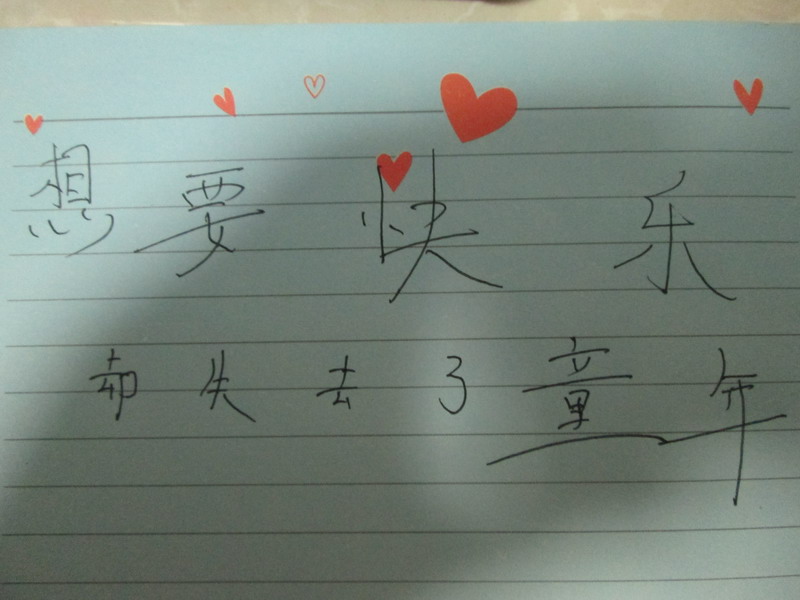 想要快乐
却失去了童年